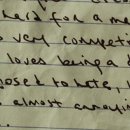 hard for a m
very competiti
loves being a
posed to hate,
almost annoying